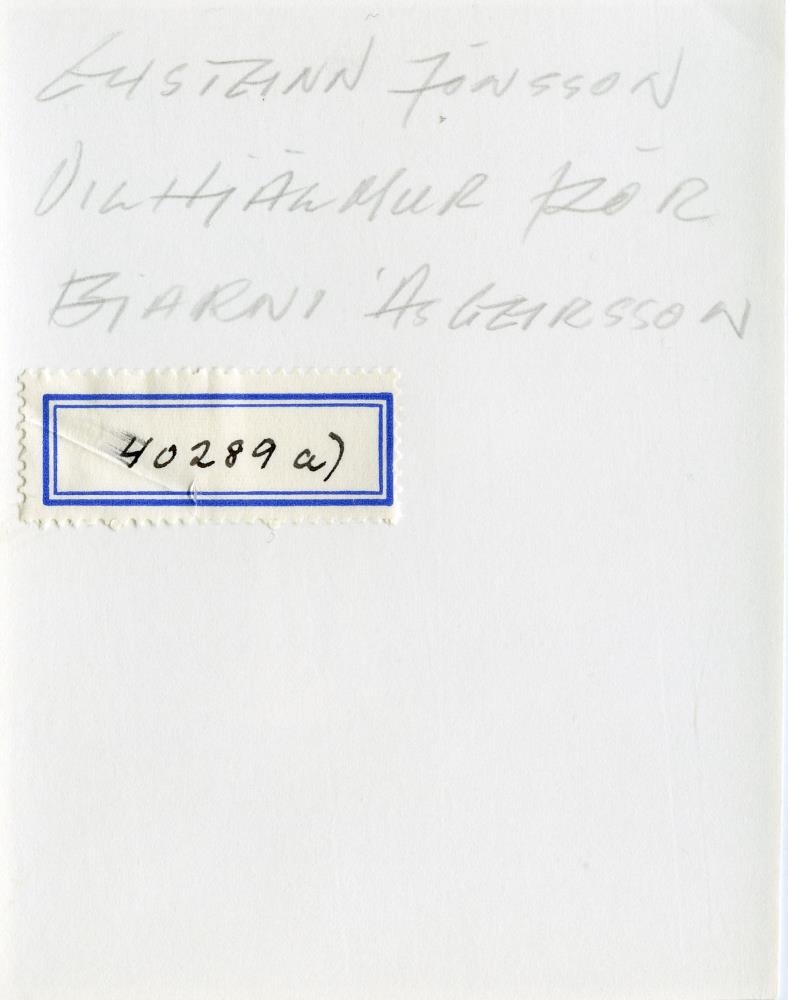 EYSTEINN JÓNSSON
VILHJÁLMUR ÞÓR
BJARNI ÁSGEIRSSON
40289 a)